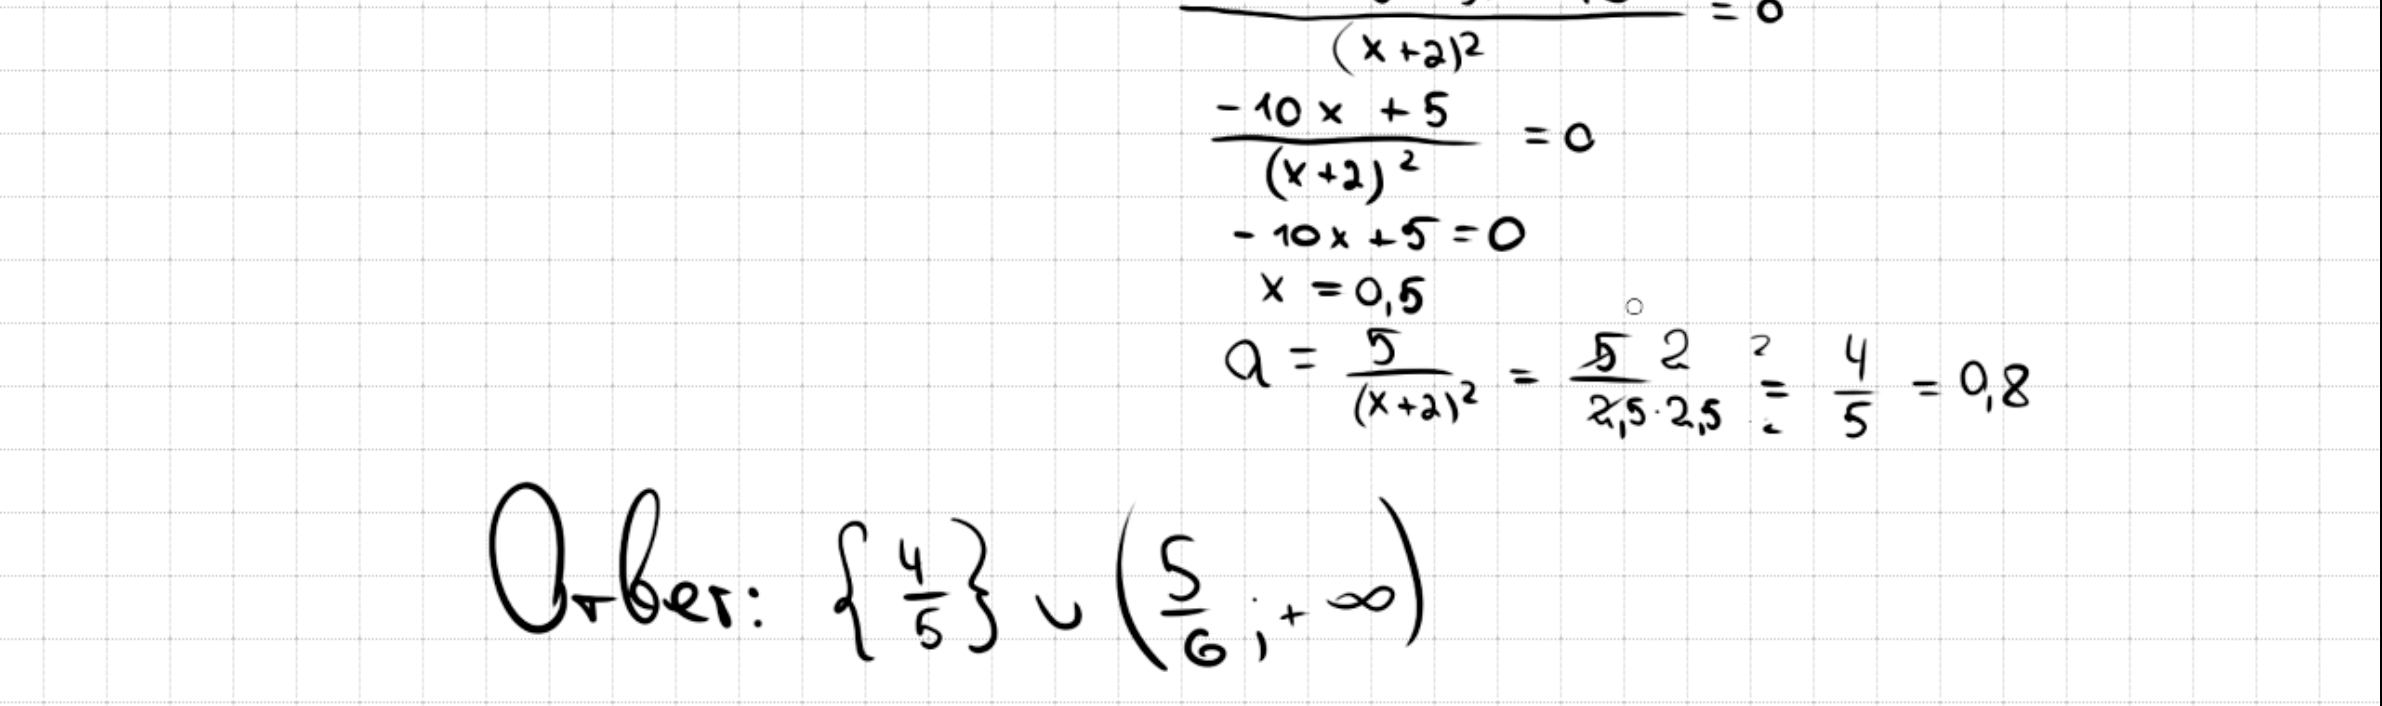 = 0
(x+2)²
-10x +5
= 0
(x+2)²
-10x+5=0
x = 0,5
a = 5/(x+2)² = 5 2/2,5·2,5 = 4/5 = 0,8
Ответ: {4/5} ∪ (5/6; +∞)